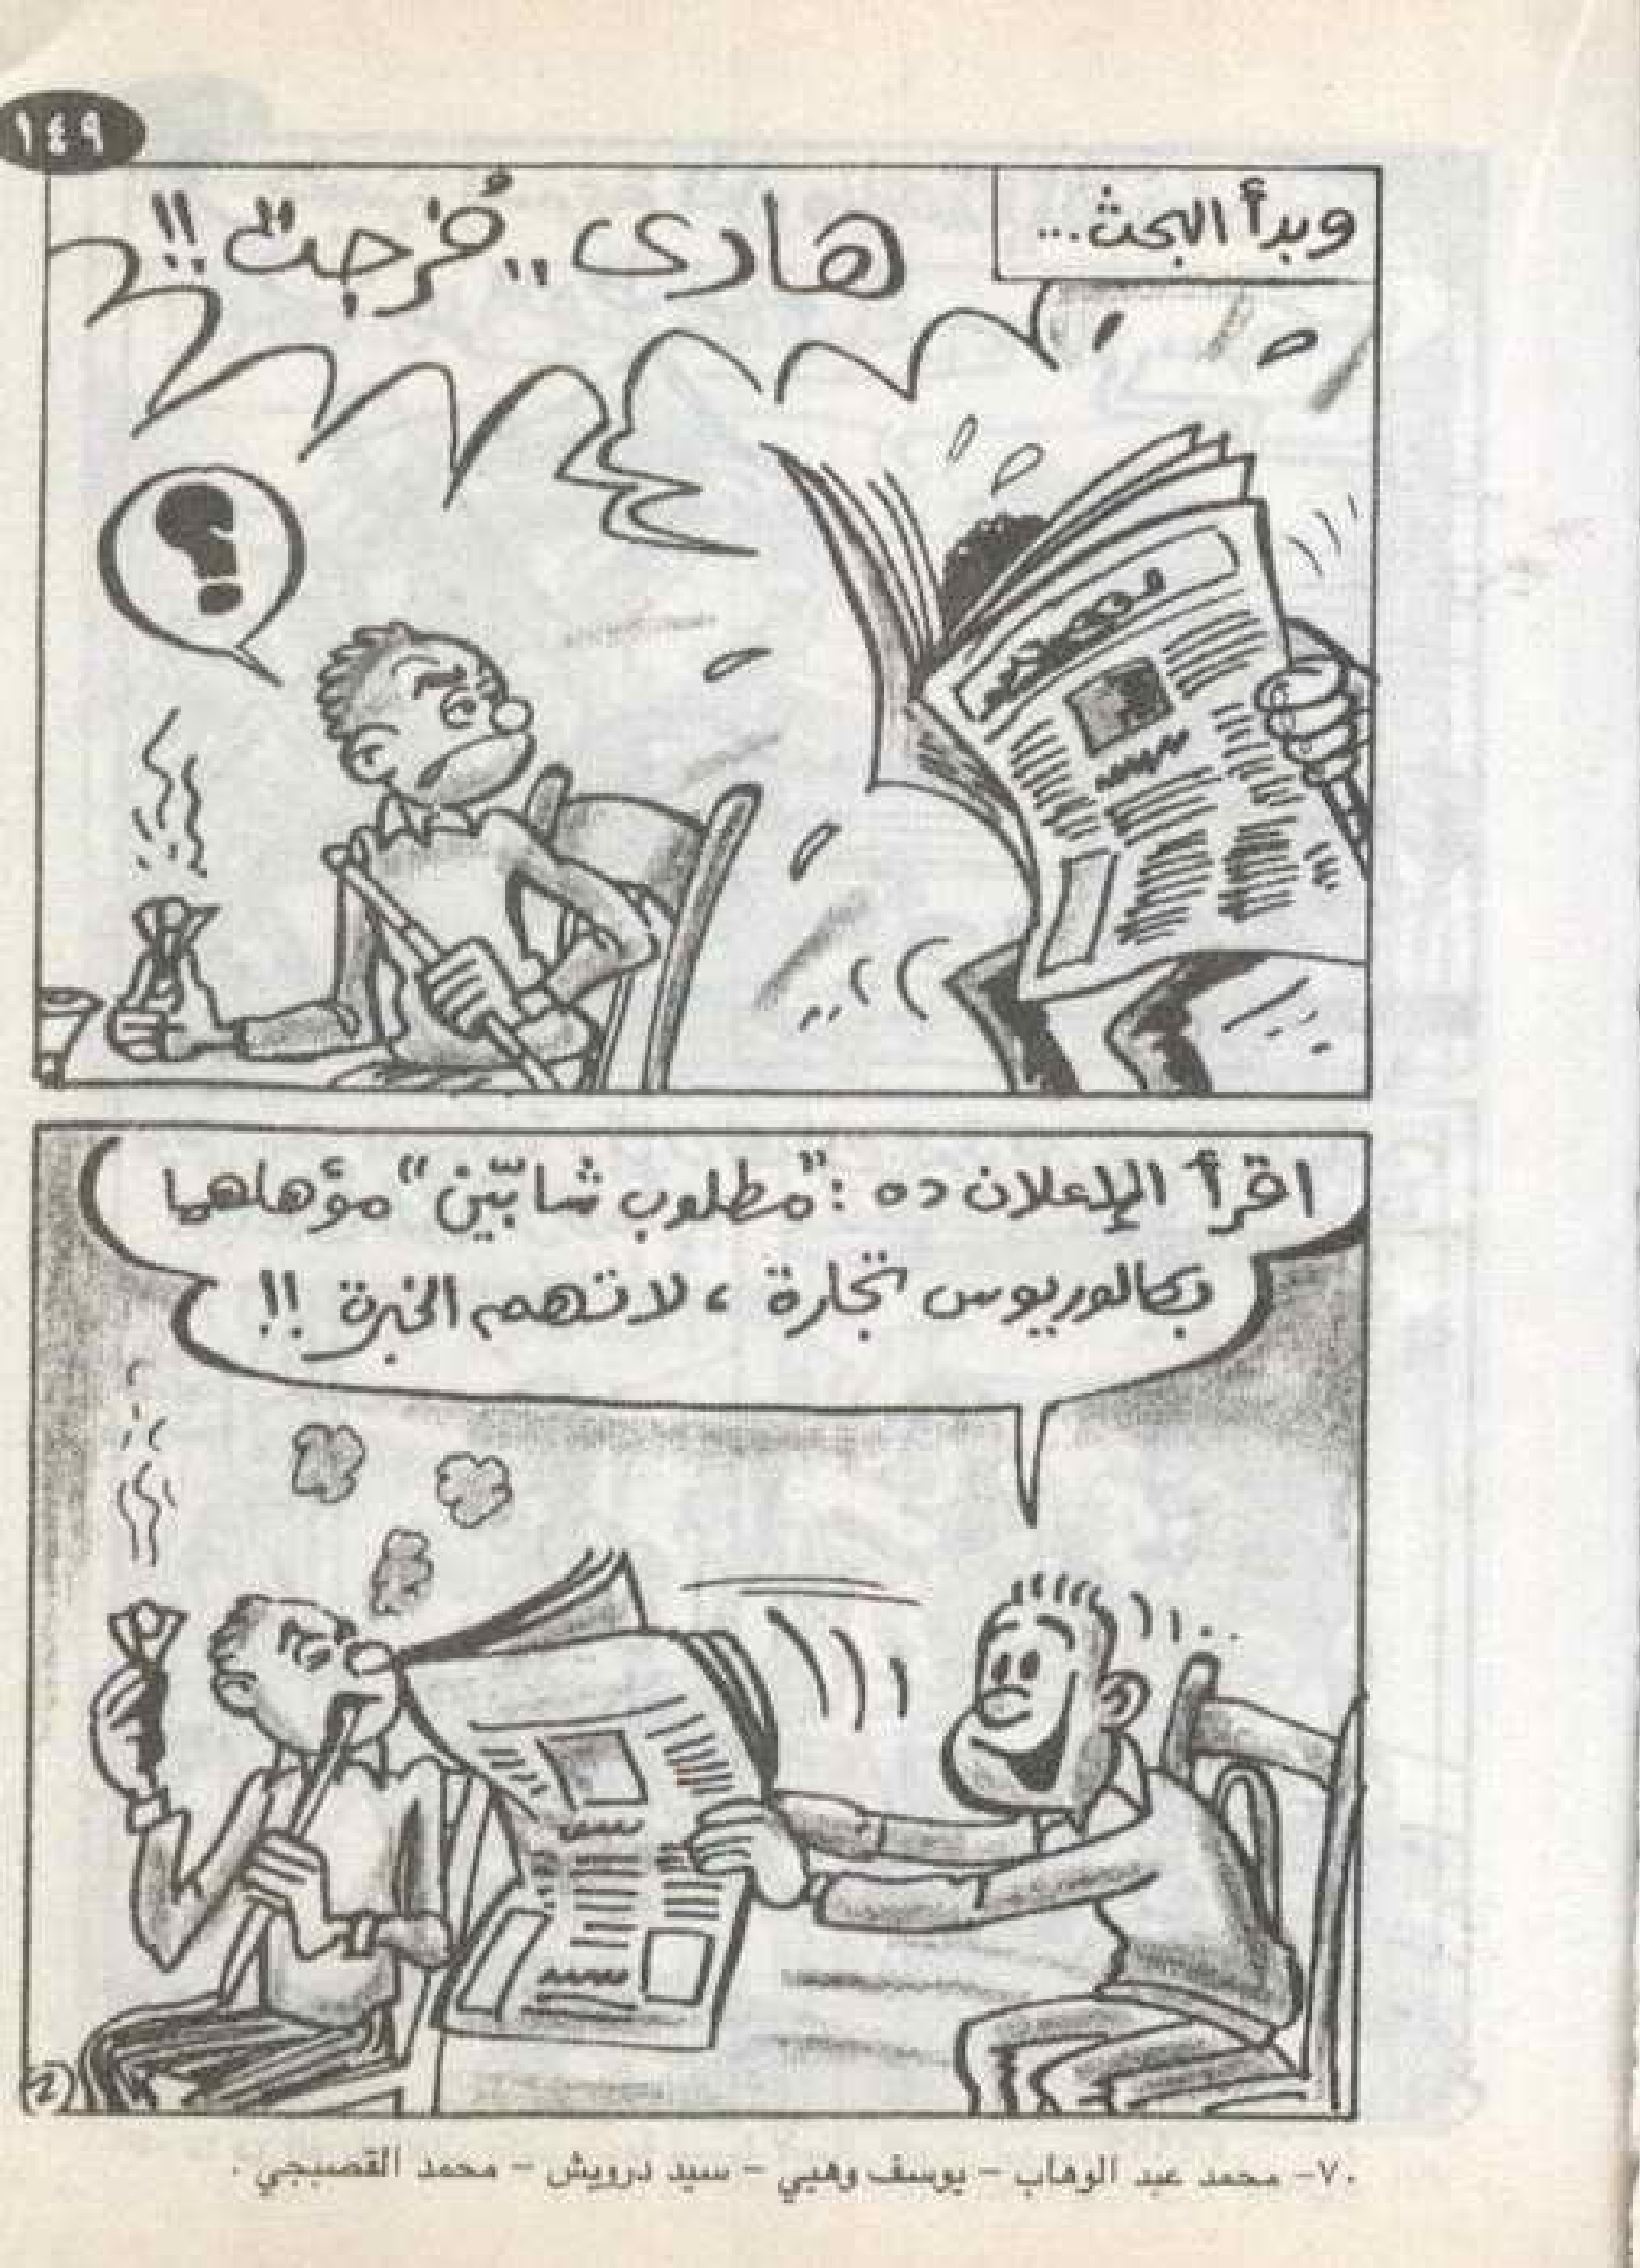 ١٤٩
وبدأ البحث...
هادى.. فُرجت!!
؟
اقرأ الإعلان ده: "مطلوب شابّين" مؤهلهما
بكالوريوس تجارة، لا تهم الخبرة!!
٢
٧٠- محمد عبد الوهاب - يوسف وهبي - سيد درويش - محمد القصبجي.